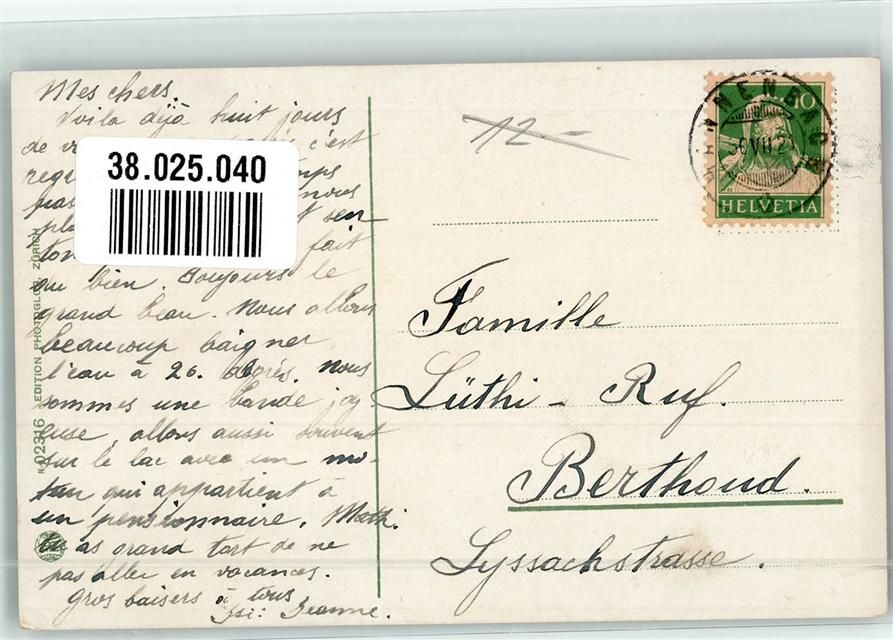 Mes chers.
Voila déjà huit jours
de c'est
nous
sen
fait
du bien. Toujours le
grand beau. Nous allons
beaucoup baigner
l'eau à 26. degrés. Nous
sommes une bande joy
euse, allons aussi souvent
sur le lac avec un mo-
teur qui appartient à
un pensionnaire. Math.
tu as grand tort de ne
pas aller en vacances.
gros baisers à tous
Jeanne.
38.025.040
No 02316 EDITION PHOTOGLOB, ZÜRICH
12-
10
HELVETIA
MANNENBACH
30 VII 2
Famille
Lüthi - Ruf.
Berthoud.
Lyssachstrasse.